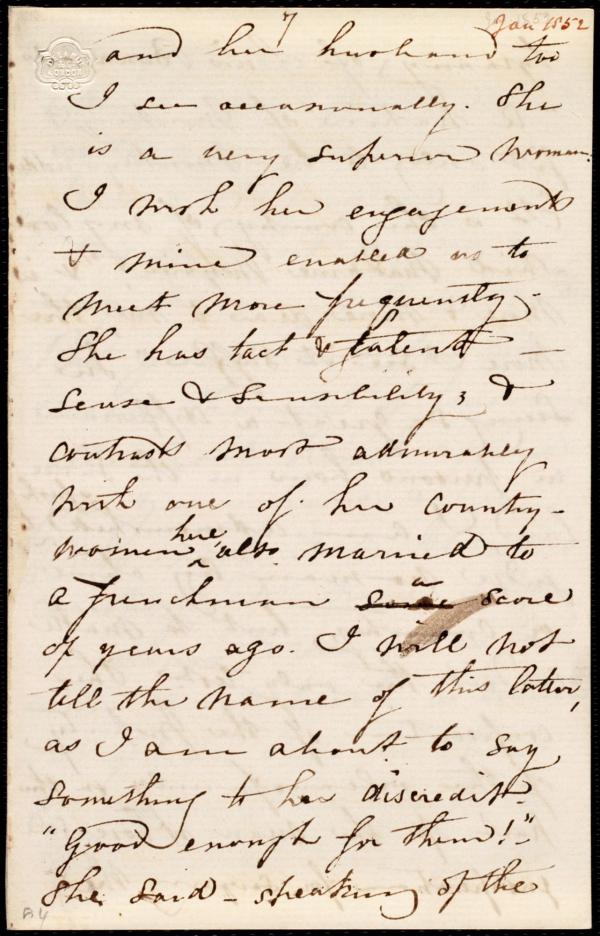 7
Jan 1852
LONDON
and her husband too
I see occasionally. She
is a very superior woman.
I wish her engagements
& mine enabled us to
meet more frequently.
She has tact & talent —
sense & sensibility; &
contrasts most admirably
with one of her country-
women here also married to
a frenchman some a score
of years ago. I will not
tell the name of this latter,
as I am about to say
something to her discredit.
"Good enough for them!"
She said - speaking of the